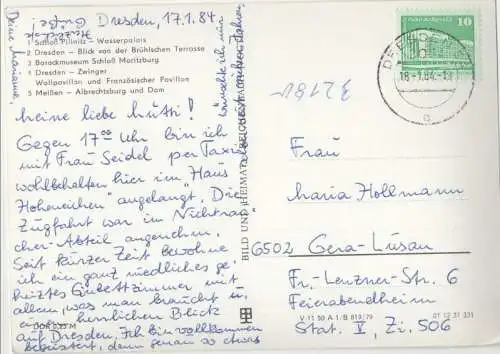 Dresden, 17.1.84
1 Schloß Pillnitz – Wasserpalais
2 Dresden – Blick von der Brühlschen Terrasse
3 Barockmuseum Schloß Moritzburg
4 Dresden – Zwinger
Wallpavillon und Französischer Pavillon
5 Meißen – Albrechtsburg und Dom
Meine liebe Mutti!
Gegen 17⁰⁰ Uhr bin ich
mit Frau Seidel per Taxi
wohlbehalten hier im Haus
Hoheneichen angelangt. Die
Zugfahrt war im Nichtrau-
cher-Abteil angenehm.
Seit kurzer Zeit bewohne
ich ein ganz niedliches ge-
heiztes Einbettzimmer mit
allem, was man braucht u.
herrlichen Blick
auf Dresden. Ich bin vollkommen
begeistert, denn genau so etwas
wünschte ich mir
Herzliche Grüße!
Deine Marianne
BILD UND HEIMAT REICHENBACH
10
18.-1.84
3218
Frau
Maria Hollmann
6502 Gera-Lusan
Fr.-Lenzner-Straße 6
Feierabendheim
Stat. V, Zi. 506
V 11 50 A 1/B 819/79
01 12 31 331